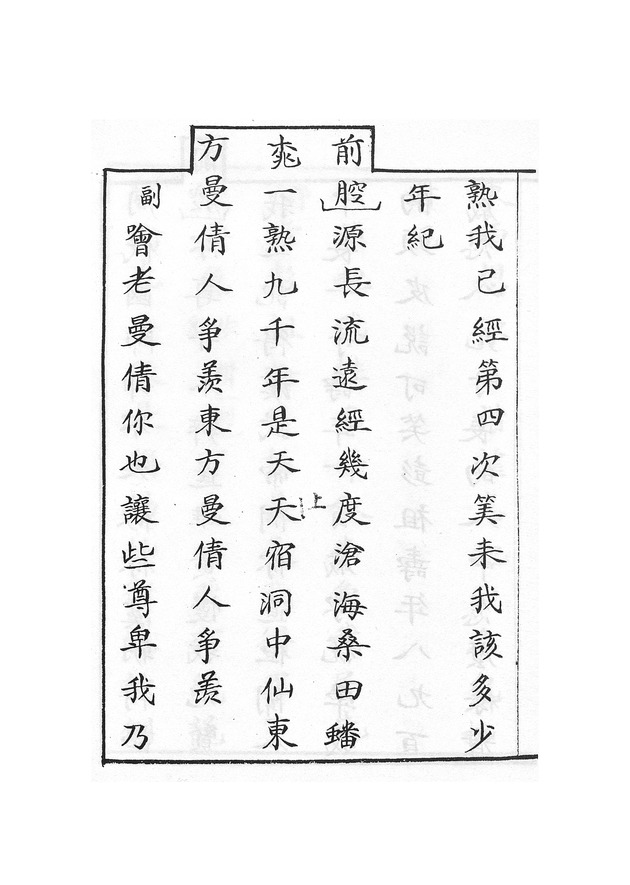 熟我已經第四次筭来我該多少
年紀
前腔源長流遠經幾度滄海桑田蟠
上
桃一熟九千年是天天宿洞中仙東
方曼倩人爭羨東方曼倩人爭羨
副噲老曼倩你也讓些尊卑我乃